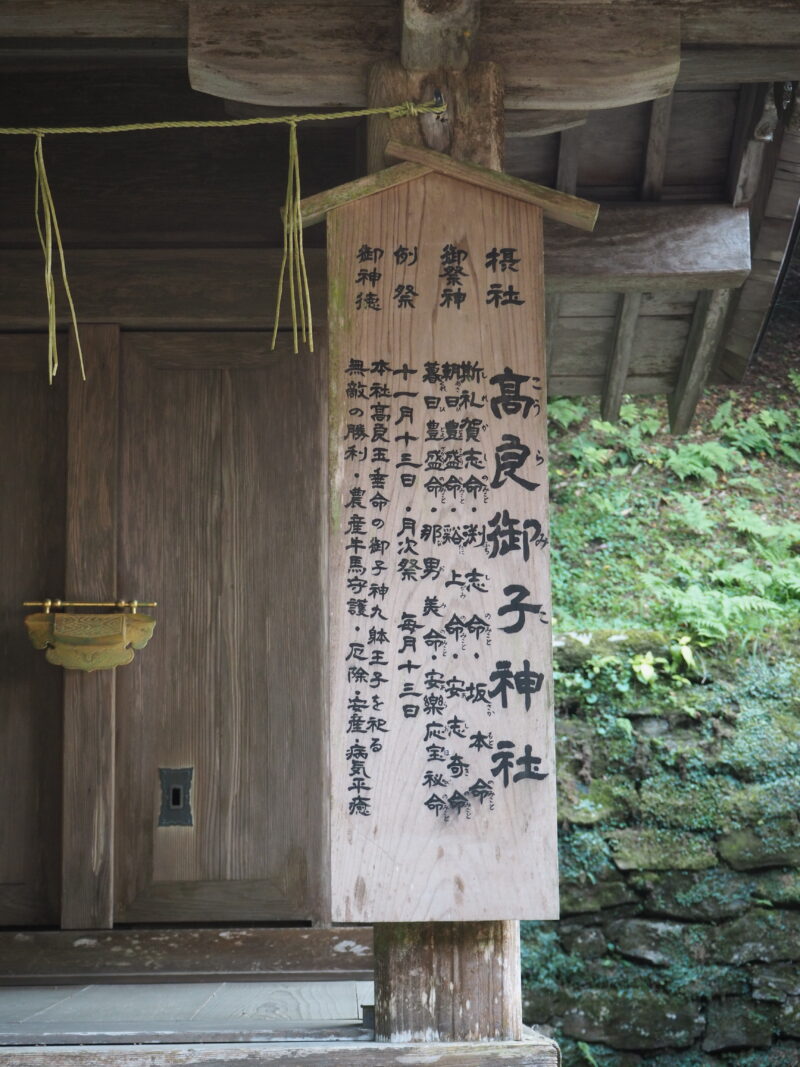 摂社 髙良御子神社
こうらみこ
御祭神 斯礼賀志命・渕志命・坂本命
朝日豊盛命・谿上命・安志奇命
暮日豊盛命・那男美命・安樂応宝秘命
例祭 十一月十三日・月次祭 毎月十三日
御神徳 本社髙良玉垂命の御子神九躰王子を祀る
無敵の勝利・農産牛馬守護・厄除・安産・病気平癒